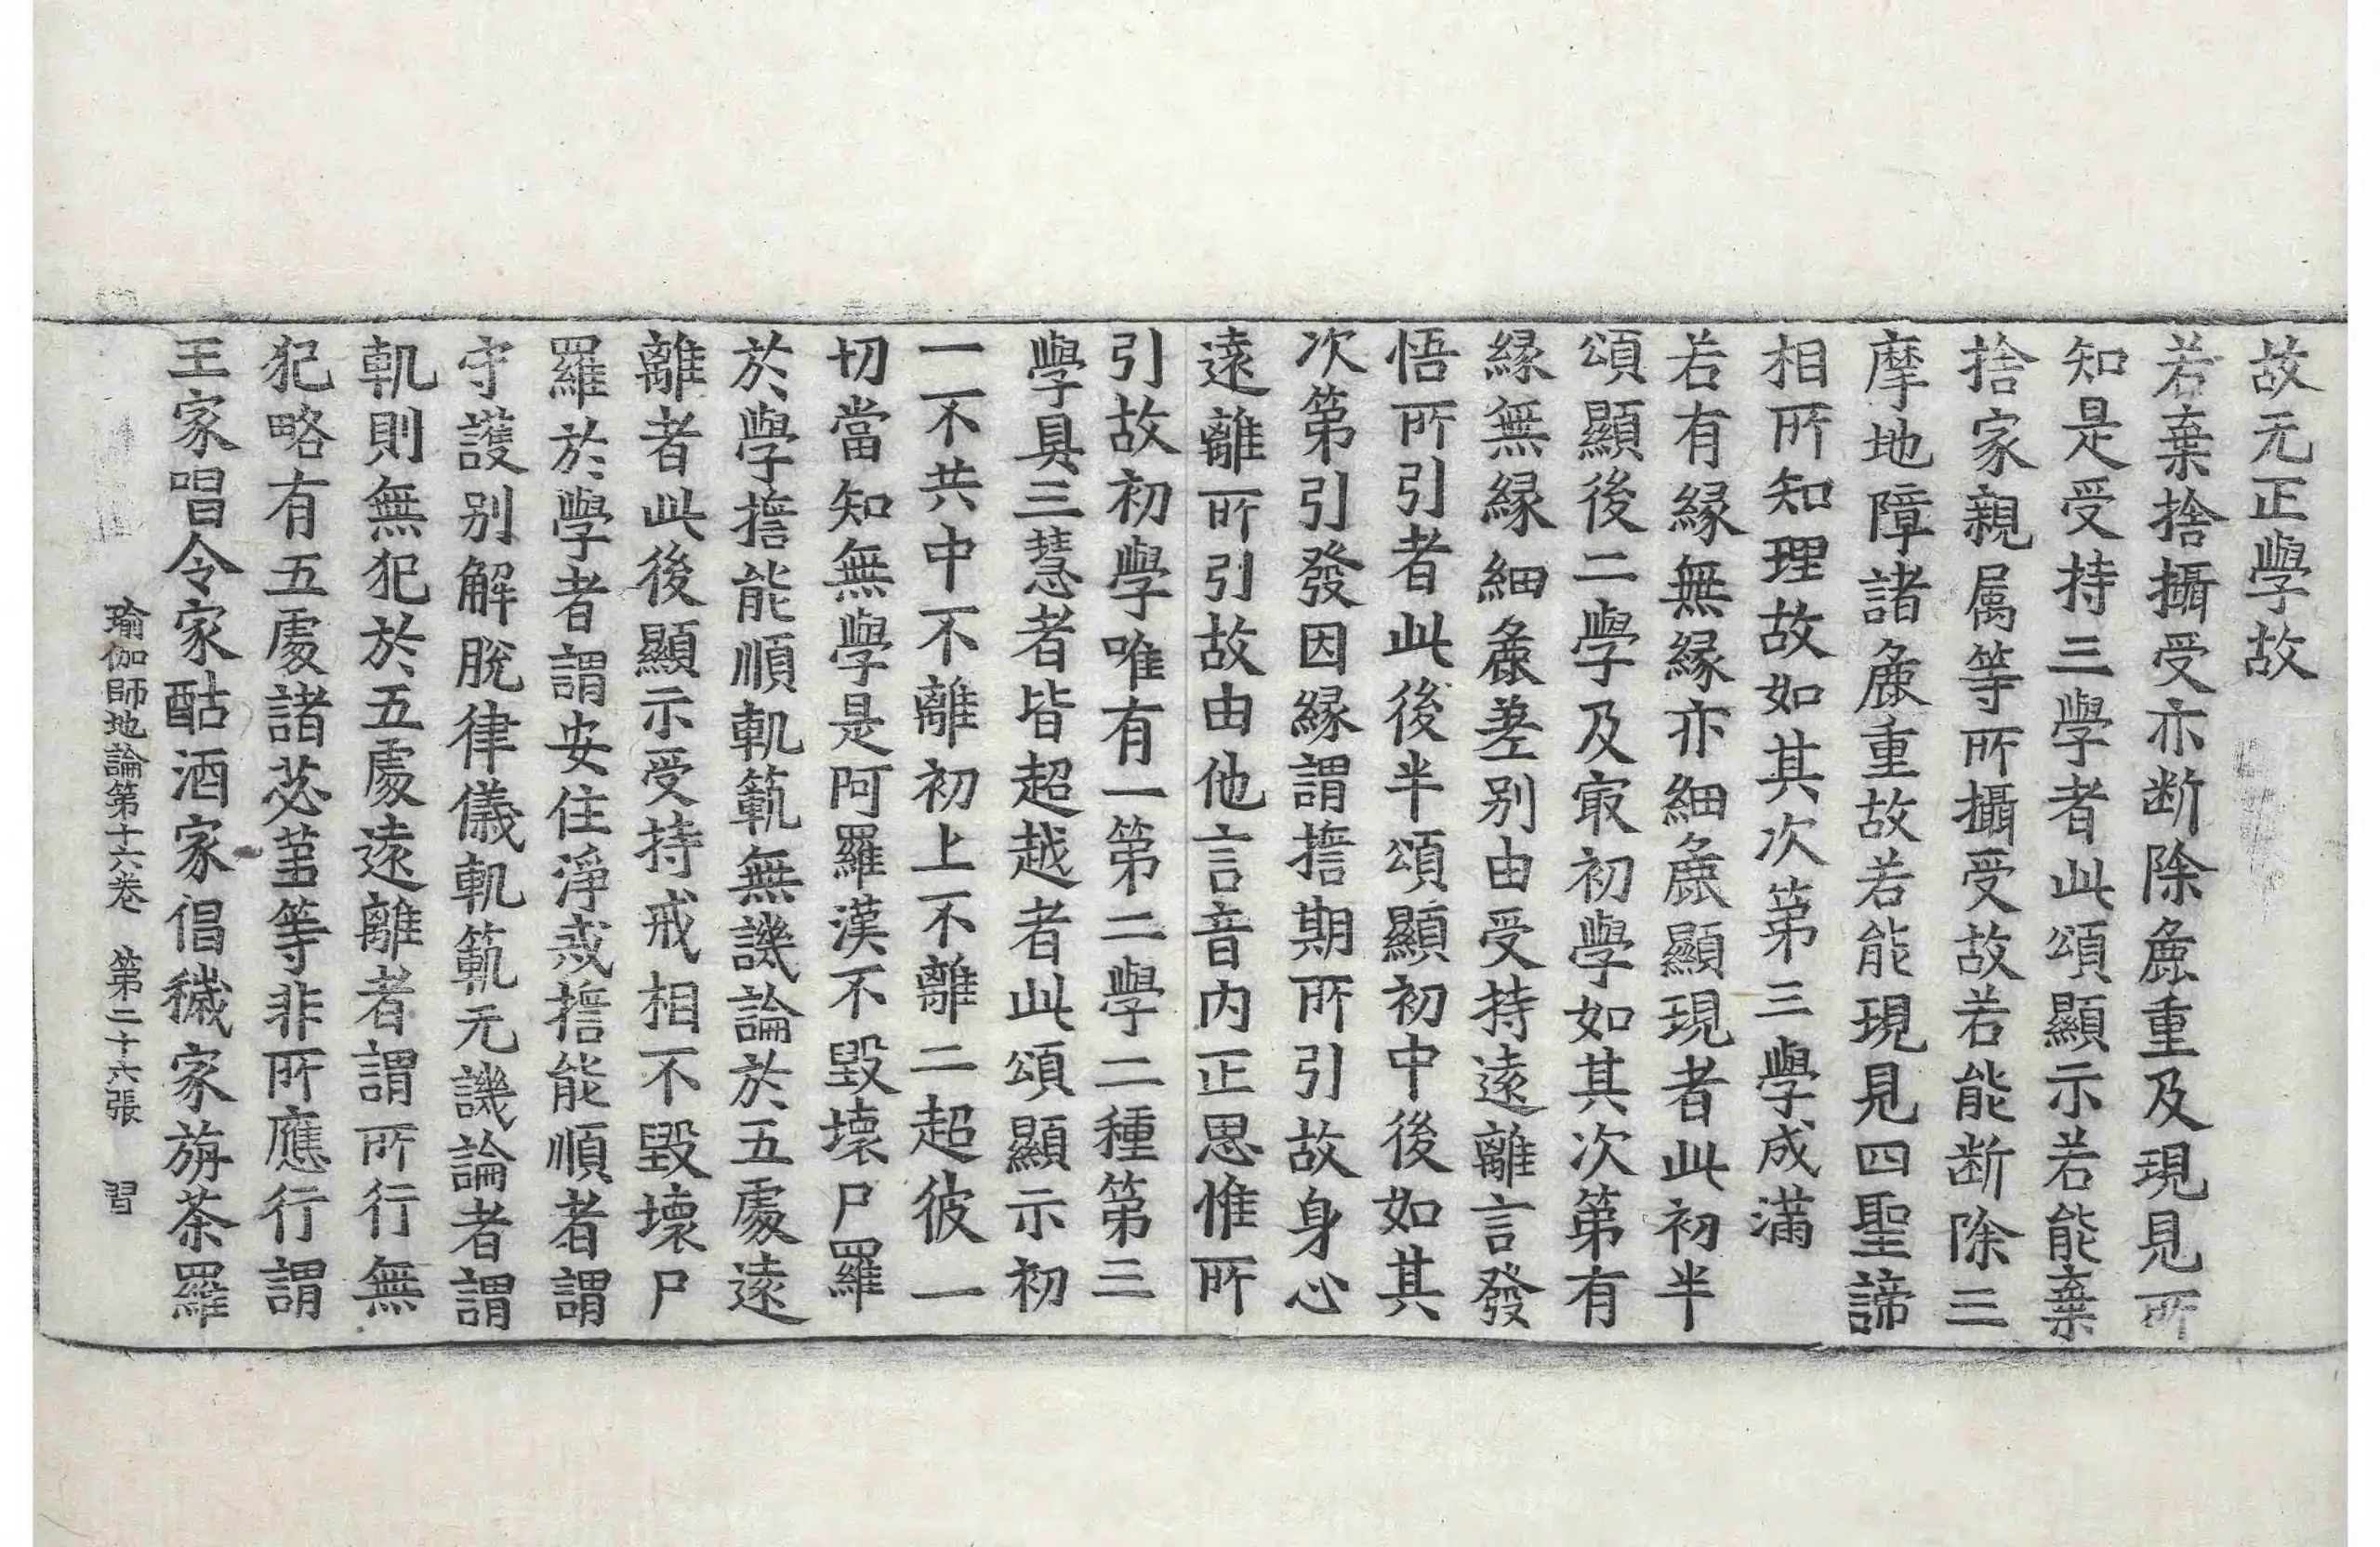 故无正學故
若棄捨攝受亦断除麁重及現見所
知是受持三學者此頌顯示若能棄
捨家親属等所攝受故若能断除三
摩地障諸麁重故若能現見四聖諦
相所知理故如其次第三學成滿
若有縁無縁亦細麁顯現者此初半
頌顯後二學及㝡初學如其次第有
縁無縁細麁差别由受持遠離言發
悟所引者此後半頌顯初中後如其
次第引發因縁謂擔期所引故身心
遠離所引故由他言音内正思惟所
引故初學唯有一第二學二種第三
學具三慧者皆超越者此頌顯示初
一不共中不離初上不離二超彼一
切當知無學是阿羅漢不毀壞尸羅
於學擔能順軌範無譏論於五處遠
離者此後顯示受持戒相不毀壞尸
羅於學者謂安住淨戒擔能順者謂
守護别解脫律儀軌範无譏論者謂
軌則無犯於五處遠離者謂所行無
犯略有五處諸苾蒭等非所應行謂
王家唱令家酤酒家倡穢家旃荼羅
瑜伽師地論第十六卷　第二十六張　習